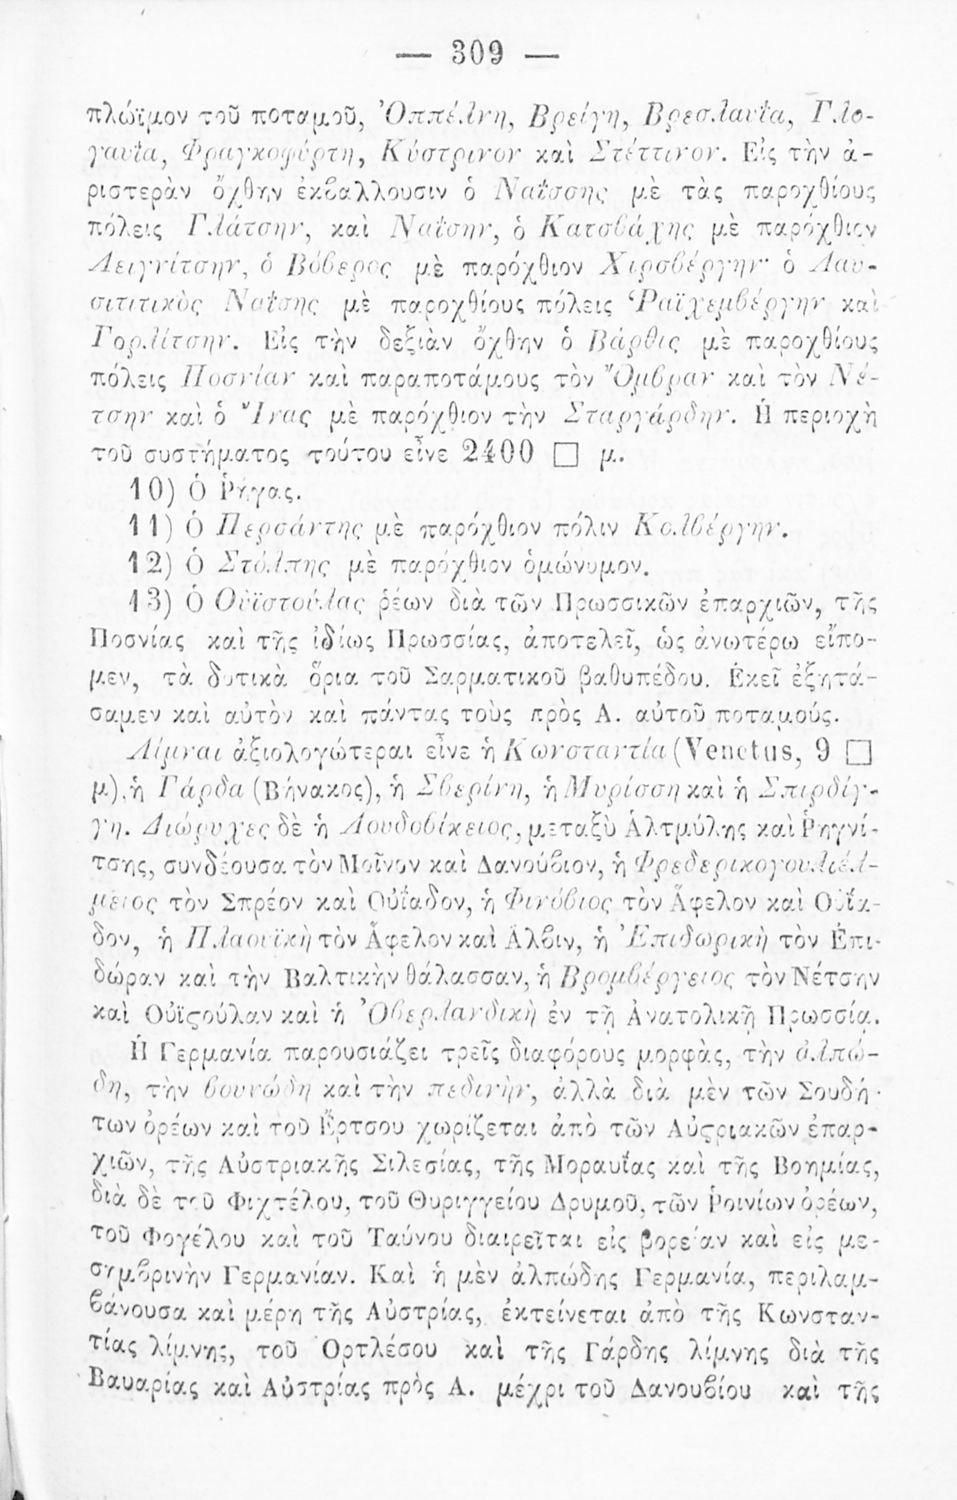 — 309 —
πλώϊμον τοῦ ποταμοῦ, Ὀππέλνη, Βρείγη, Βρεσλαυΐα, Γλο-
γαυΐα, Φραγκοφύρτη, Κύστρινον καὶ Στέττινον. Εἰς τὴν ἀ-
ριστερὰν ὄχθην ἐκβάλλουσιν ὁ Ναΐσσης μὲ τὰς παροχθίους
πόλεις Γλάτσην, καὶ Ναΐσην, ὁ Κατσβάχης μὲ παρόχθιον
Λειγνίτσην, ὁ Βόβερος μὲ παρόχθιον Χιρσβέργην· ὁ Λαυ-
σιτιτικὸς Ναΐσης μὲ παροχθίους πόλεις Ῥαϊχεμβέργην καὶ
Γορλίτσην. Εἰς τὴν δεξιὰν ὄχθην ὁ Βάρθις μὲ παροχθίους
πόλεις Ποσνίαν καὶ παραποτάμους τὸν Ὄμβραν καὶ τὸν Νέ-
τσην καὶ ὁ Ἴνας μὲ παρόχθιον τὴν Σταργάρδην. Ἡ περιοχὴ
τοῦ συστήματος τούτου εἶνε 2400 □ μ.
10) Ὁ Ῥήγας.
11) Ὁ Περσάντης μὲ παρόχθιον πόλιν Κολβέργην.
12) Ὁ Στόλπης μὲ παρόχθιον ὁμώνυμον.
13) Ὁ Οὐϊστούλας ῥέων διὰ τῶν Πρωσσικῶν ἐπαρχιῶν, τῆς
Ποσνίας καὶ τῆς ἰδίως Πρωσσίας, ἀποτελεῖ, ὡς ἀνωτέρω εἴπο-
μεν, τὰ δυτικὰ ὅρια τοῦ Σαρματικοῦ βαθυπέδου. Ἐκεῖ ἐξητά-
σαμεν καὶ αὐτὸν καὶ πάντας τοὺς πρὸς Α. αὐτοῦ ποταμούς.
Λίμναι ἀξιολογώτεραι εἶνε ἡ Κωνσταντία (Venetus, 9 □
μ), ἡ Γάρδα (Βήνακος), ἡ Σβερίνη, ἡ Μυρίσση καὶ ἡ Σπιρδίγ-
γη. Διώρυχες δὲ ἡ Λουδοβίκειος, μεταξὺ Ἀλτμύλης καὶ Ῥηγνί-
τσης, συνδέουσα τὸν Μοῖνον καὶ Δανούβιον, ἡ Φρεδερικογουλιέλ-
μειος τὸν Σπρέον καὶ Οὐΐαδον, ἡ Φινόβιος τὸν Ἄφελον καὶ Οὐΐα-
δον, ἡ Πλαουϊκὴ τὸν Ἄφελον καὶ Ἄλβιν, ἡ Ἐπιδωρικὴ τὸν Ἐπι-
δώραν καὶ τὴν Βαλτικὴν θάλασσαν, ἡ Βρομβέργειος τὸν Νέτσην
καὶ Οὐϊϛούλαν καὶ ἡ Ὀβερλανδικὴ ἐν τῇ Ἀνατολικῇ Πρωσσίᾳ.
Ἡ Γερμανία παρουσιάζει τρεῖς διαφόρους μορφὰς, τὴν ἀλπώ-
δη, τὴν βουνώδη καὶ τὴν πεδινὴν, ἀλλὰ διὰ μὲν τῶν Σουδή-
των ὀρέων καὶ τοῦ Ἔρτσου χωρίζεται ἀπὸ τῶν Αὐϛριακῶν ἐπαρ-
χιῶν, τῆς Αὐστριακῆς Σιλεσίας, τῆς Μοραυΐας καὶ τῆς Βοημίας,
διὰ δὲ τοῦ Φιχτέλου, τοῦ Θυριγγείου Δρυμοῦ, τῶν Ῥοινίων ὀρέων,
τοῦ Φογέλου καὶ τοῦ Ταύνου διαιρεῖται εἰς βορείαν καὶ εἰς με-
σημβρινὴν Γερμανίαν. Καὶ ἡ μὲν ἀλπώδης Γερμανία, περιλαμ-
βάνουσα καὶ μέρη τῆς Αὐστρίας, ἐκτείνεται ἀπὸ τῆς Κωνσταν-
τίας λίμνης, τοῦ Ὀρτλέσου καὶ τῆς Γάρδης λίμνης διὰ τῆς
Βαυαρίας καὶ Αὐστρίας πρὸς Α. μέχρι τοῦ Δανουβίου καὶ τῆς